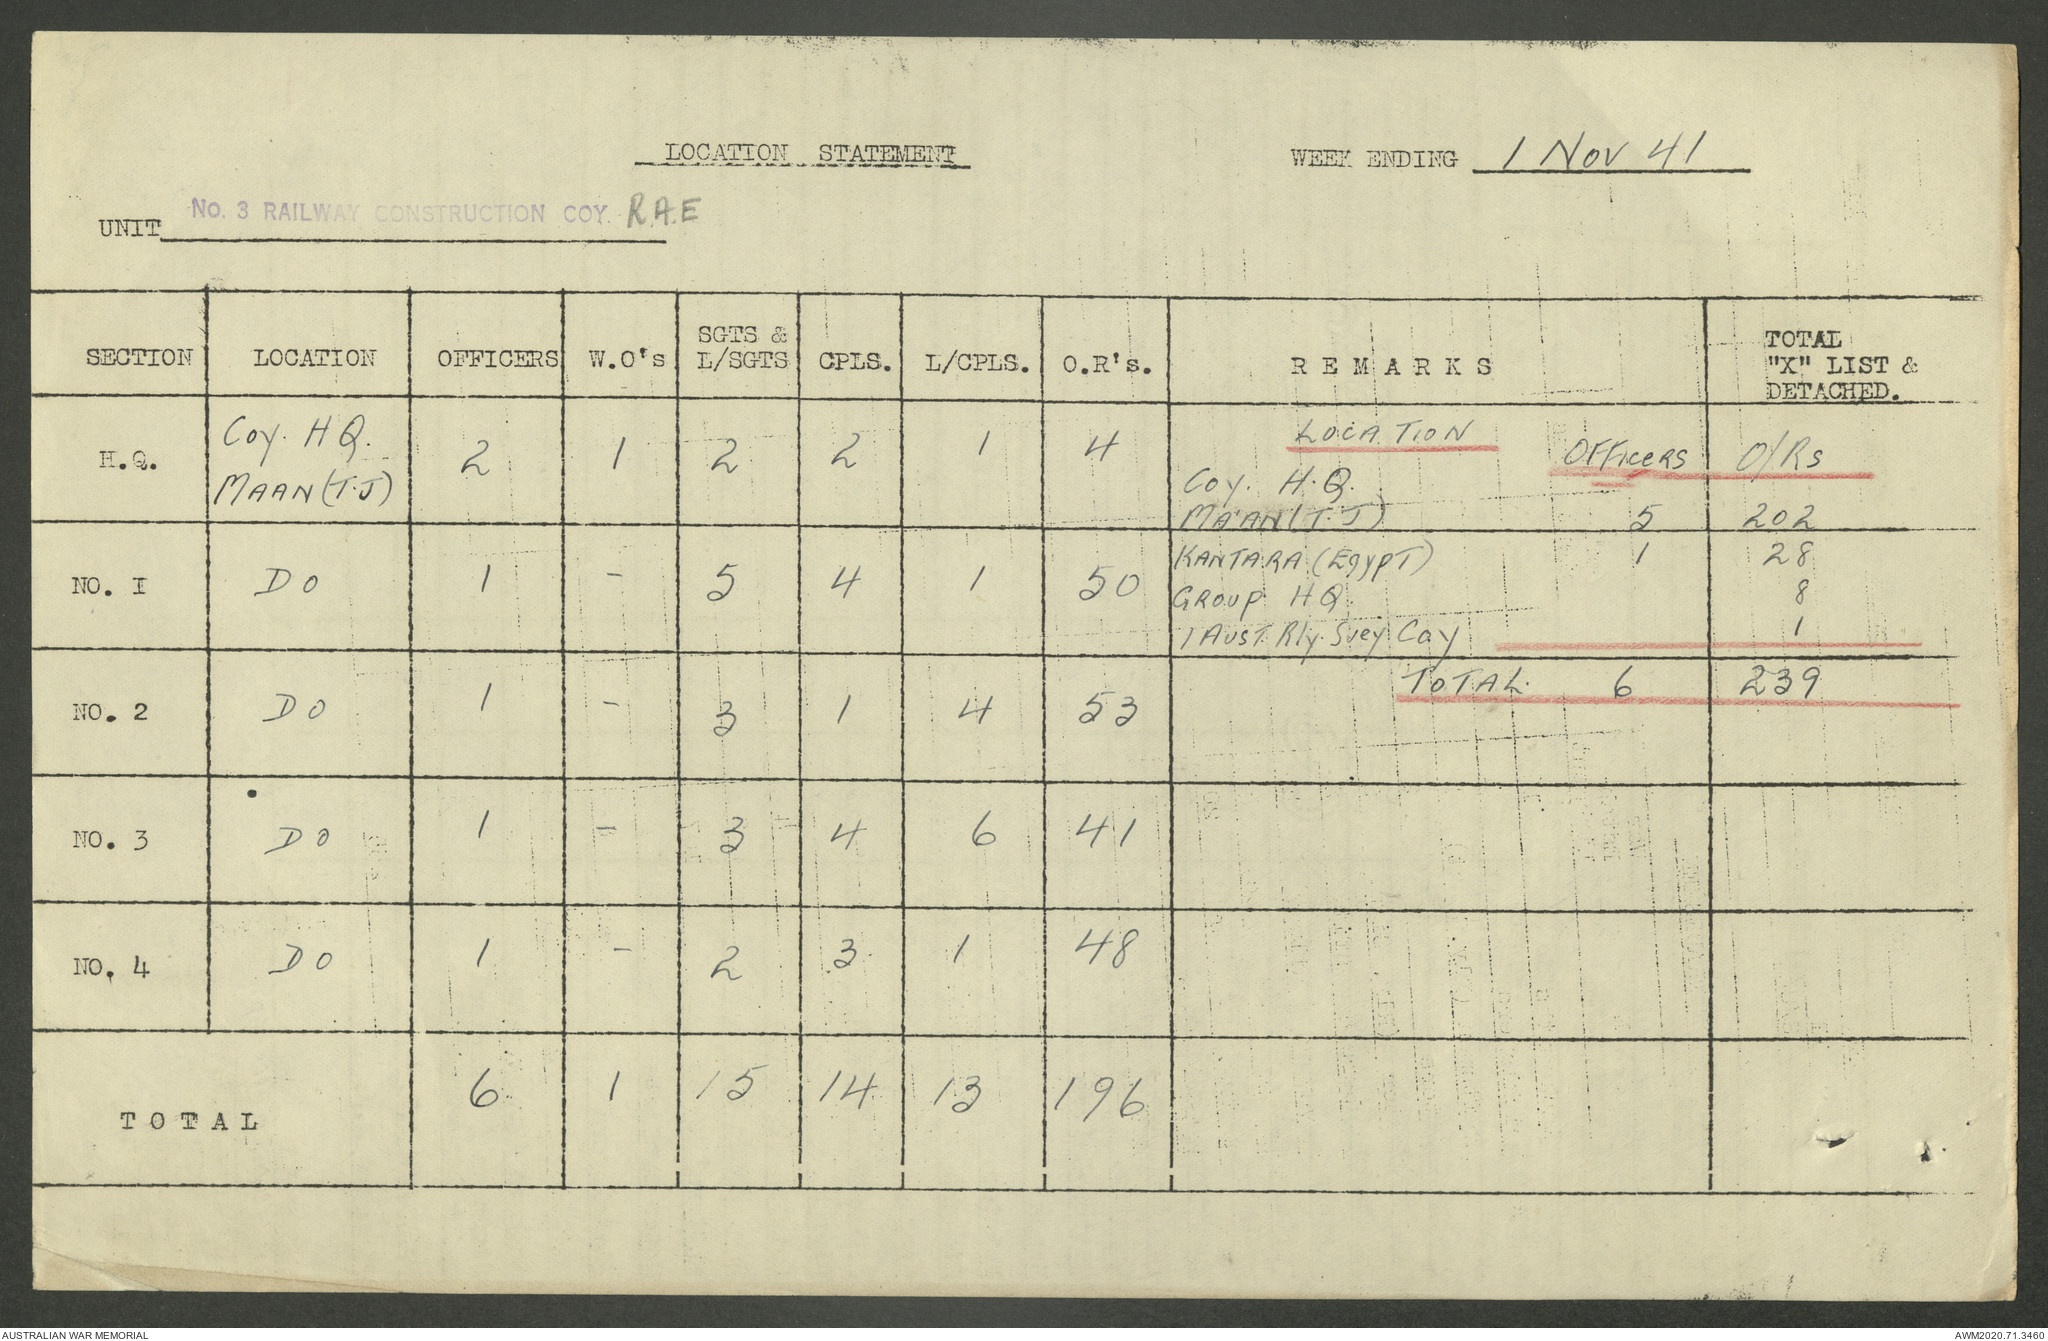 LOCATION STATEMENT
WEEK ENDING 1 Nov 41
UNIT No. 3 RAILWAY CONSTRUCTION COY. R.A.E
SECTION LOCATION OFFICERS W.O's SGTS & L/SGTS CPLS. L/CPLS. O.R's. REMARKS TOTAL "X" LIST & DETACHED.
H.Q. Coy. H Q. MAAN (T.J) 2 1 2 2 1 4
NO. I DO 1 - 5 4 1 50
NO. 2 DO 1 - 3 1 4 53
NO. 3 DO 1 - 3 4 6 41
NO. 4 DO 1 - 2 3 1 48
TOTAL 6 1 15 14 13 196
LOCATION OFFICERS O/Rs
Coy. H.Q.
MA'AN (T.J) 5 202
KANTARA (EgypT) 1 28
GROUP HQ. 8
1 AUST. Rly. Svey Coy 1
TOTAL. 6 239
AUSTRALIAN WAR MEMORIAL
AWM2020.71.3460